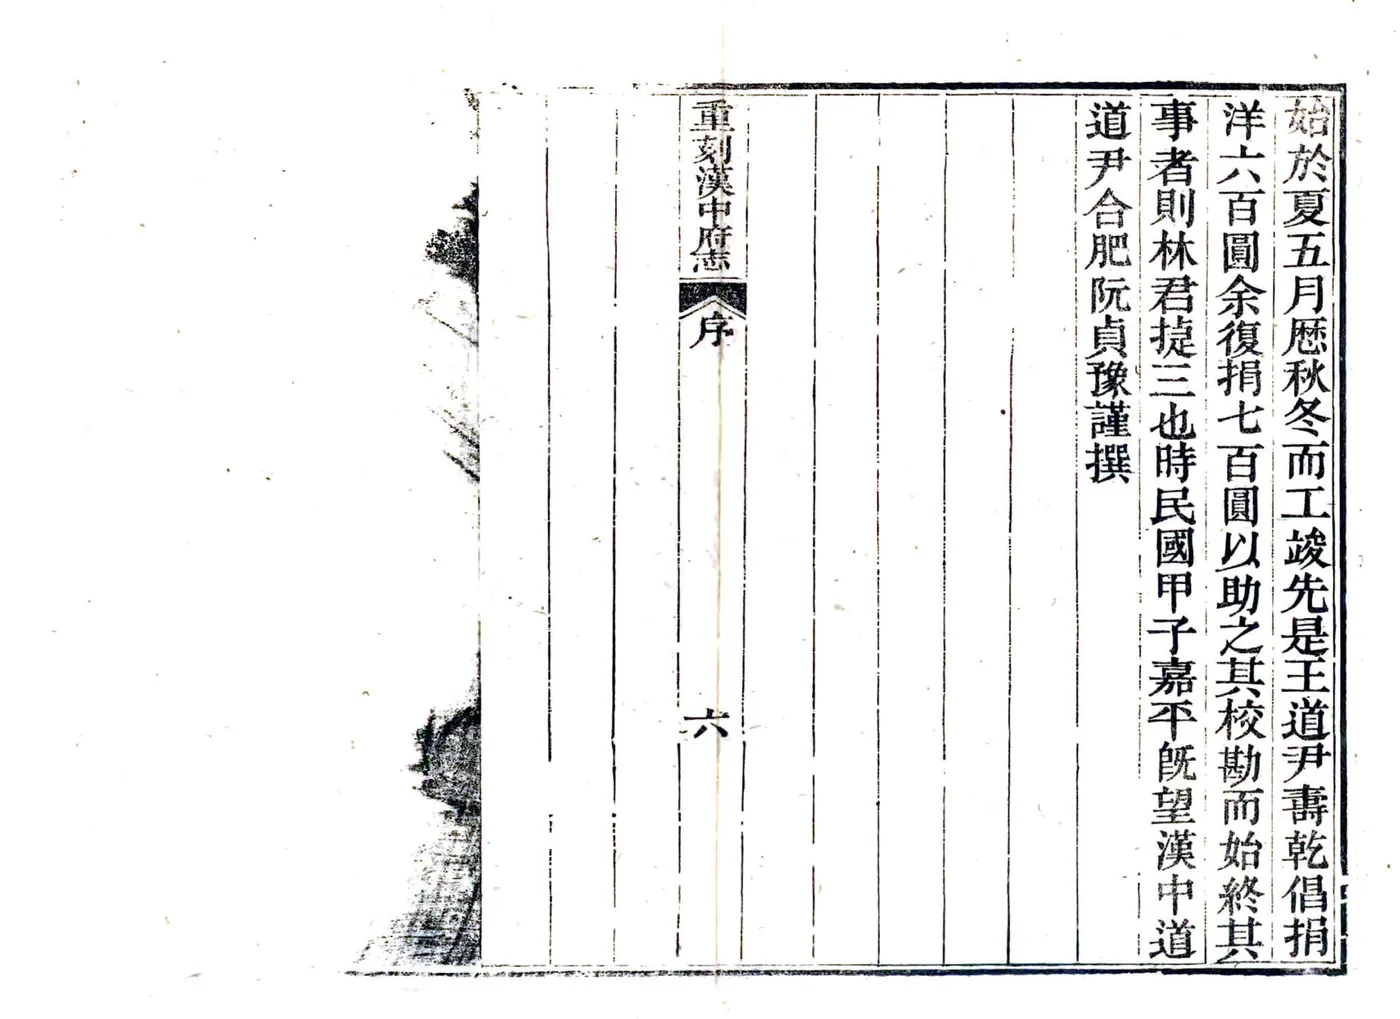 始於夏五月歷秋冬而工竣先是王道尹壽乾倡捐
洋六百圓余復捐七百圓以助之其校勘而始終其
事者則林君㨗三也時民國甲子嘉平既望漢中道
道尹合肥阮貞豫謹撰
重刻漢中府志
序
六